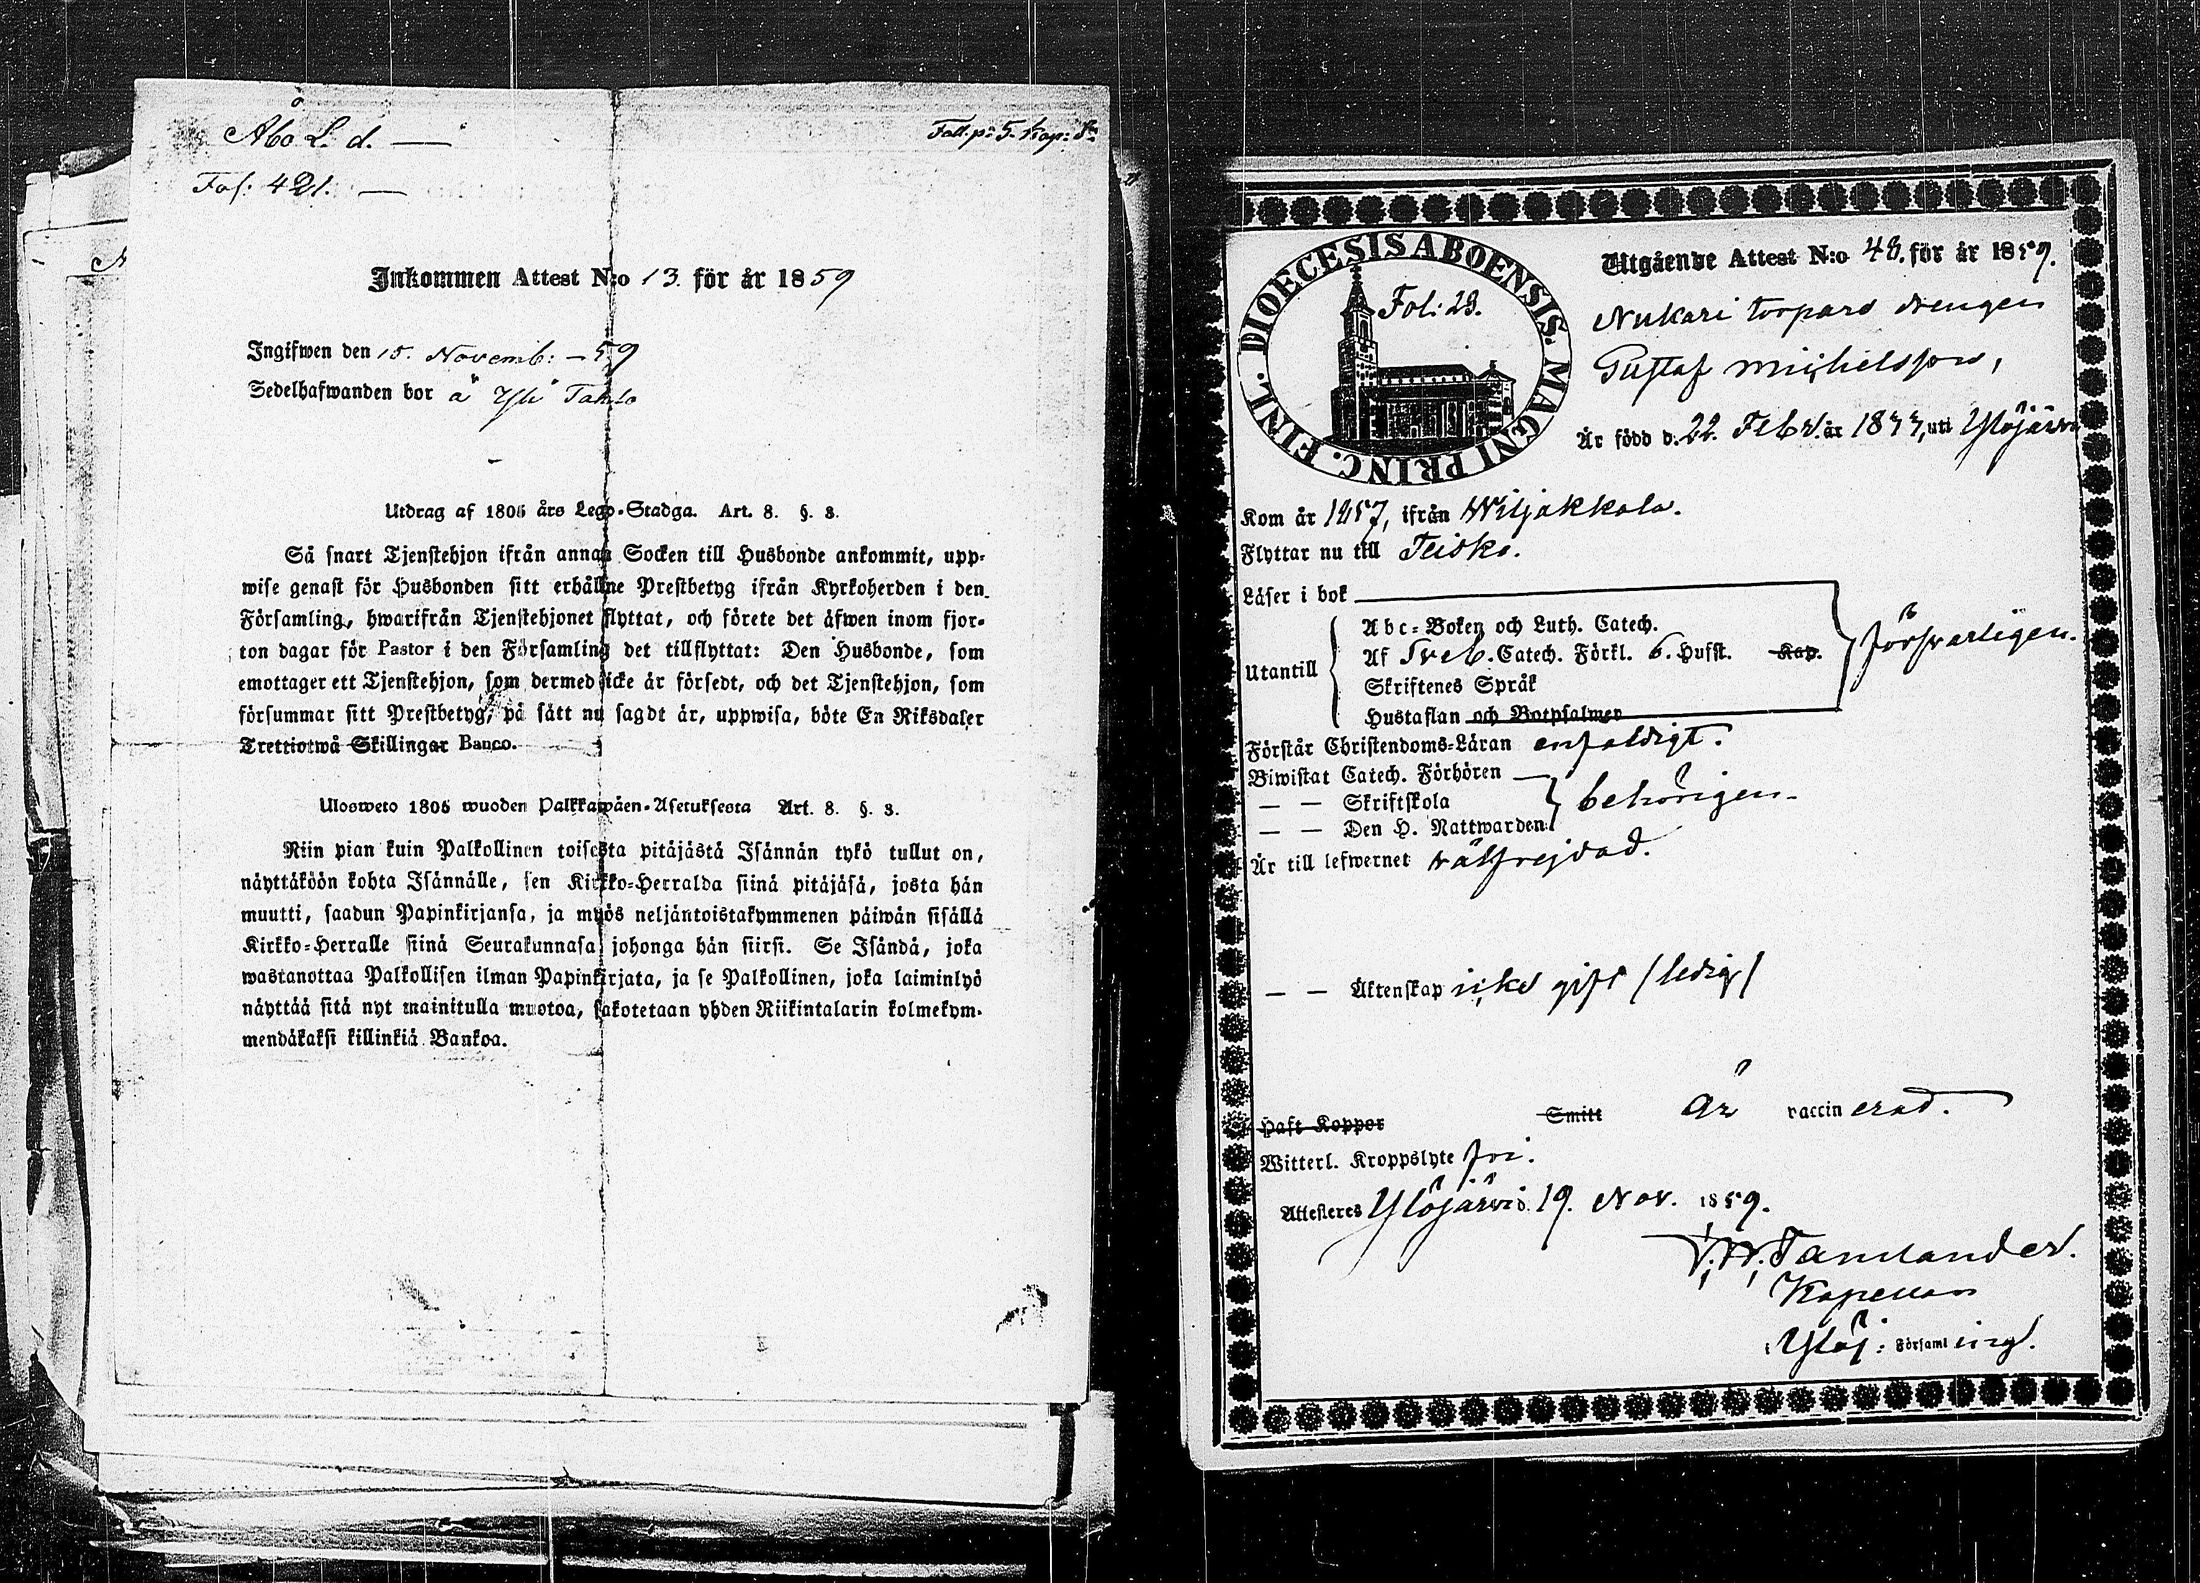 Åbo L. d. —
Fol. 421. —
Inkommen Attest N:o 13. för år 1859
Ingifwen den 15. Novemb: – 59
Sedelhafwanden bor å Yli Takala
Utdrag af 1805 års Lego-Stadga. Art. 8. §. 3.
Så snart Tjenstehjon ifrån annan Socken till Husbonde ankommit, upp-
wise genast för Husbonden sitt erhållne Prestbetyg ifrån Kyrkoherden i den
Församling, hwarifrån Tjenstehjonet flyttat, och förete det äfwen inom fjor-
ton dagar för Pastor i den Församling det tillflyttat: Den Husbonde, som
emottager ett Tjenstehjon, som dermed icke är försedt, och det Tjenstehjon, som
försummar sitt Prestbetyg, på sätt nu sagdt är, uppwisa, böte En Riksdaler
Trettiotwå Skillingar Banco.
Ulosweto 1805 wuoden Palkkawäen-Asetuksesta Art. 8. §. 3.
Niin pian kuin Palkollinen toisesta pitäjästä Isännän tykö tullut on,
näyttäköön kohta Isännälle, sen Kirkko-Herralda siinä pitäjäsä, josta hän
muutti, saadun Papinkirjansa, ja myös neljäntoistakymmenen päiwän sisällä
Kirkko-Herralle siinä Seurakunnasa johonga hän siirsi. Se Isändä, joka
wastanottaa Palkollisen ilman Papinkirjata, ja se Palkollinen, joka laiminlyö
näyttää sitä nyt mainitulla muotoa, sakotetaan yhden Riikintalarin kolmekym-
mendäkaksi killinkiä Bankoa.
DIOECESIS ABOENSIS. MAGNI PRINC. FINL.
Fol: 23.
Utgående Attest N:o 48. för år 1859.
Nukari torpare drengen
Gustaf Michelsson,
Är född d. 22. Febr. år 1833, uti Ylöjärvi
Kom år 1857, ifrån Wiljakkala.
Flyttar nu till Teisko.
Läser i bok
Utantill
Abc-Boken och Luth. Catech.
Af Sveb. Catech. Förkl. 6. Hufst. Kap.
Skriftenes Språk
Hustaflan och Botpsalmer
försvarligen.
Förstår Christendoms-Läran enfaldigt.
Biwistat Catech. Förhören
— — Skriftskola
— — Den H. Nattwarden
behörigen.
Är till lefwernet välfrejdad.
— — Äktenskap icke gift /ledig/
Haft Koppor Smitt är vaccinerad.
Witterl. Kroppslyte fri.
Attesteres Ylöjärvi d. 19. Nov. 1859.
Tamlander.
Kapellan
i Ylöj: Församling.